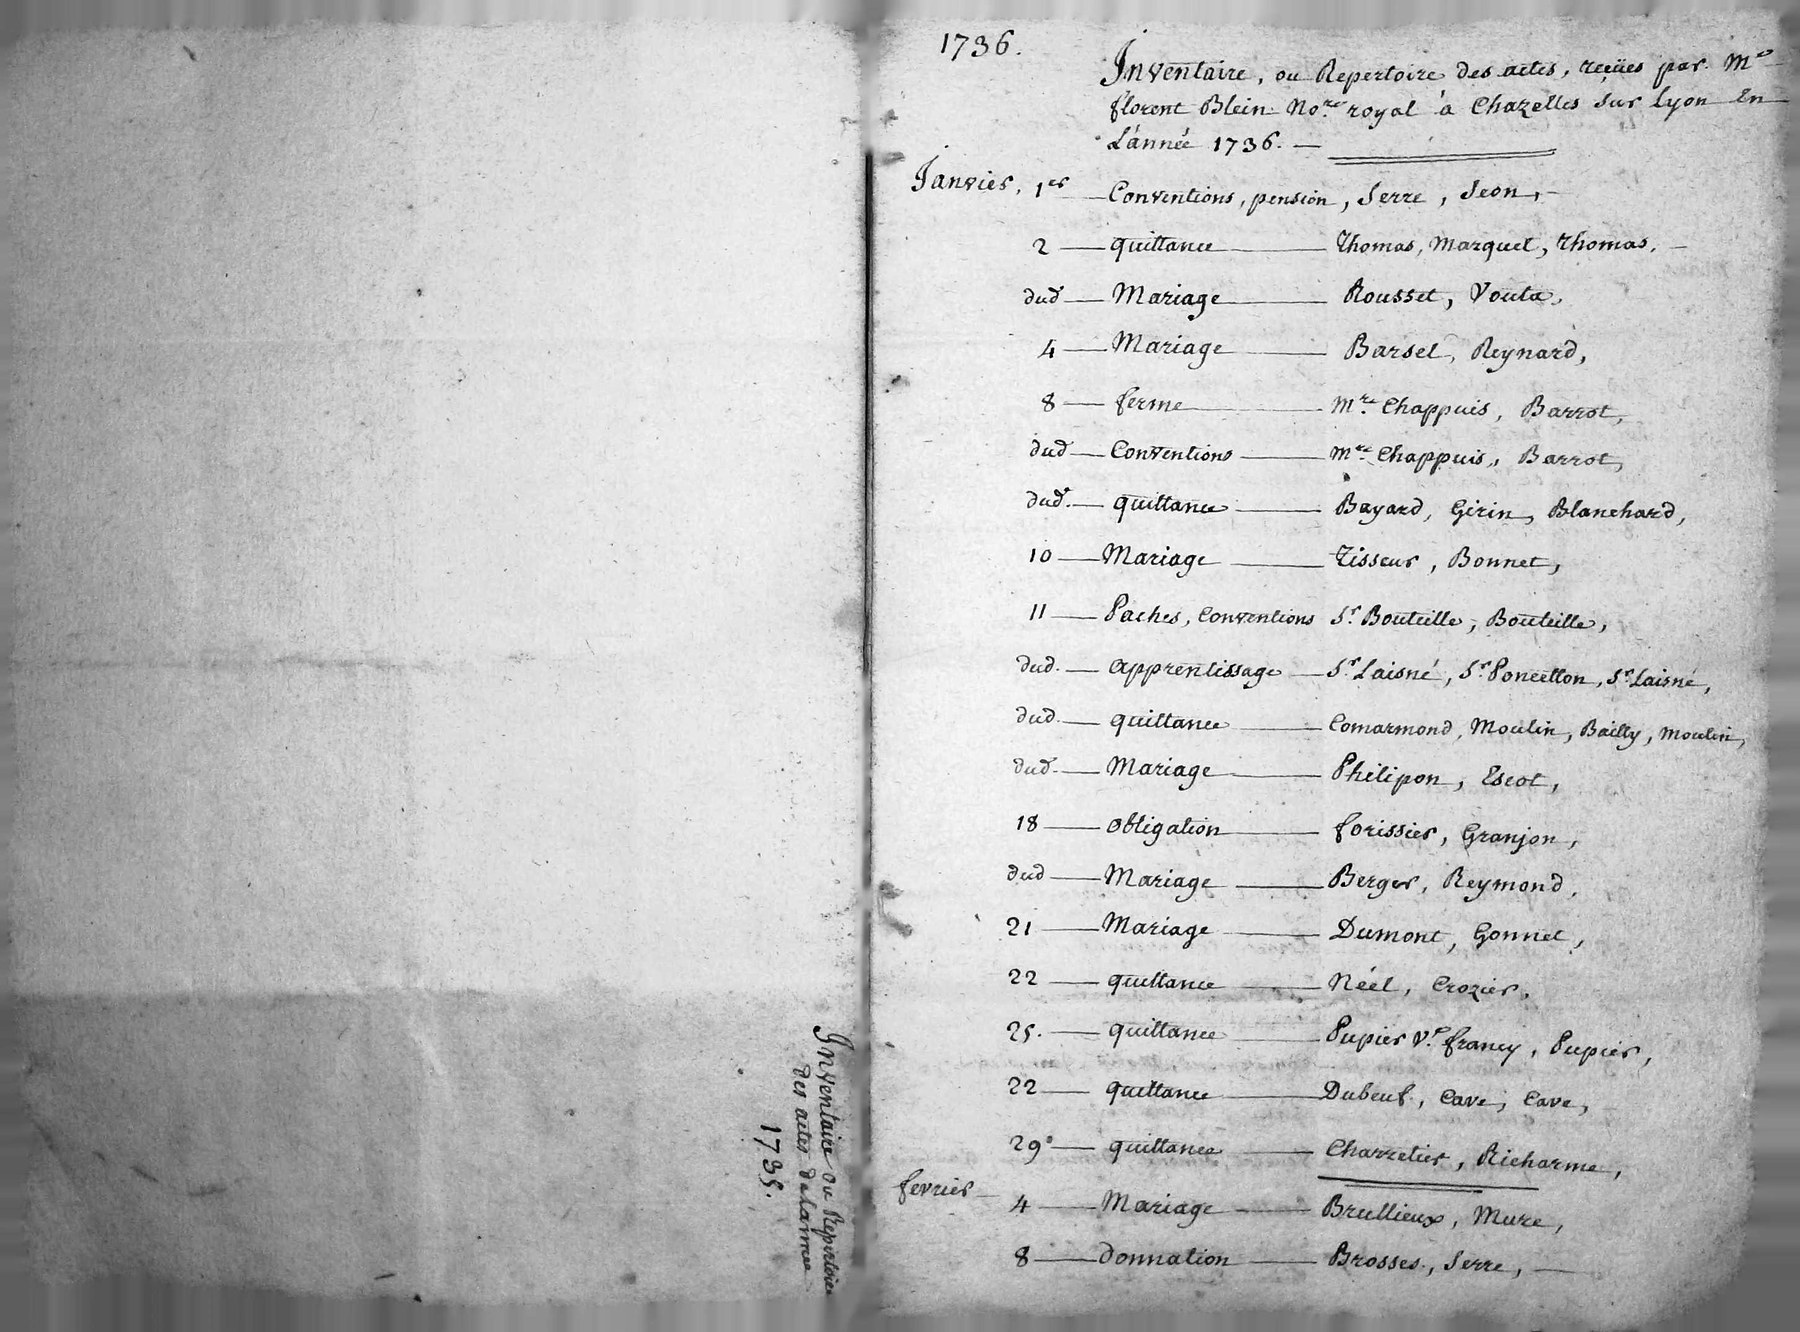 Inventaire ou Repertoire
des actes de Lannee
1735.
1736.
Inventaire, ou Repertoire des actes, reçües par Me
florent Blein No.re royal à Chazelles sur Lyon En
L'année 1736. —
Janvier, 1er — Conventions, pension, Serre, Jeon, —
2 — quittance — Thomas, Marquet, Thomas. —
dud — Mariage — Rousset, Vouta,
4 — Mariage — Barsel, Reynard,
8 — ferme — M.re Chappuis, Barrot,
dud — Conventions — M.re Chappuis, Barrot,
dud. — quittance — Bayard, Girin, Blanchard,
10 — Mariage — Tisseur, Bonnet,
11 — Paches, Conventions Sr. Bouteille, Bouteille,
dud. — apprentissage — Sr. Laisné, Sr. Poncetton, Sr. Laisné,
dud. — quittance — Comarmond, Moulin, Bailly, Moulin,
dud. — Mariage — Philipon, Escot,
18 — obligation — forissier, Granjon,
dud — Mariage — Berger, Reymond,
21 — Mariage — Dumont, Gonnet,
22 — quittance — Néel, Crozier,
25. — quittance — Pupier Ve. francy, Pupier,
22 — quittance — Dubeuf, Cave, Cave,
29 — quittance — Charretier, Richarme,
fevrier — 4 — Mariage — Brullieux, Mure,
8 — donnation — Brosses, Serre, —